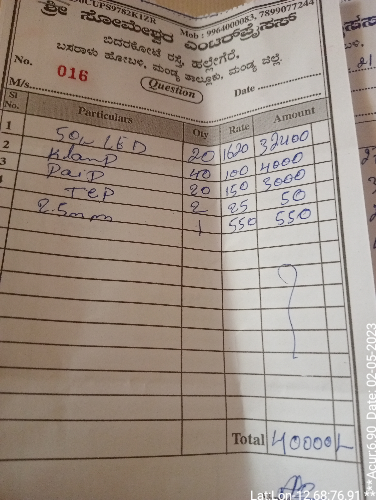 CUPS9782K1ZR
Mob : 9964000083, 7899077244
ಶ್ರೀ ಸೋಮೇಶ್ವರ ಎಂಟರ್‌ಪ್ರೈಸಸ್
ಬಿದರಕೋಟೆ ರಸ್ತೆ, ಹಲ್ಲೇಗೆರೆ,
ಬಸರಾಳು ಹೋಬಳಿ, ಮಂಡ್ಯ ತಾಲ್ಲೂಕು, ಮಂಡ್ಯ ಜಿಲ್ಲೆ.
No. 016
Question
Date
M/s.
Sl No. Particulars Qty Rate Amount
1 50w LED 20 1620 32400
2 KlamP 40 100 4000
3 PaiP 20 150 3000
4 TeP 2 25 50
2.5mm 1 550 550
Total 40000/-
Lat Lon 12.68:76.91
***Acur:6.90 Date: 02-05-2023